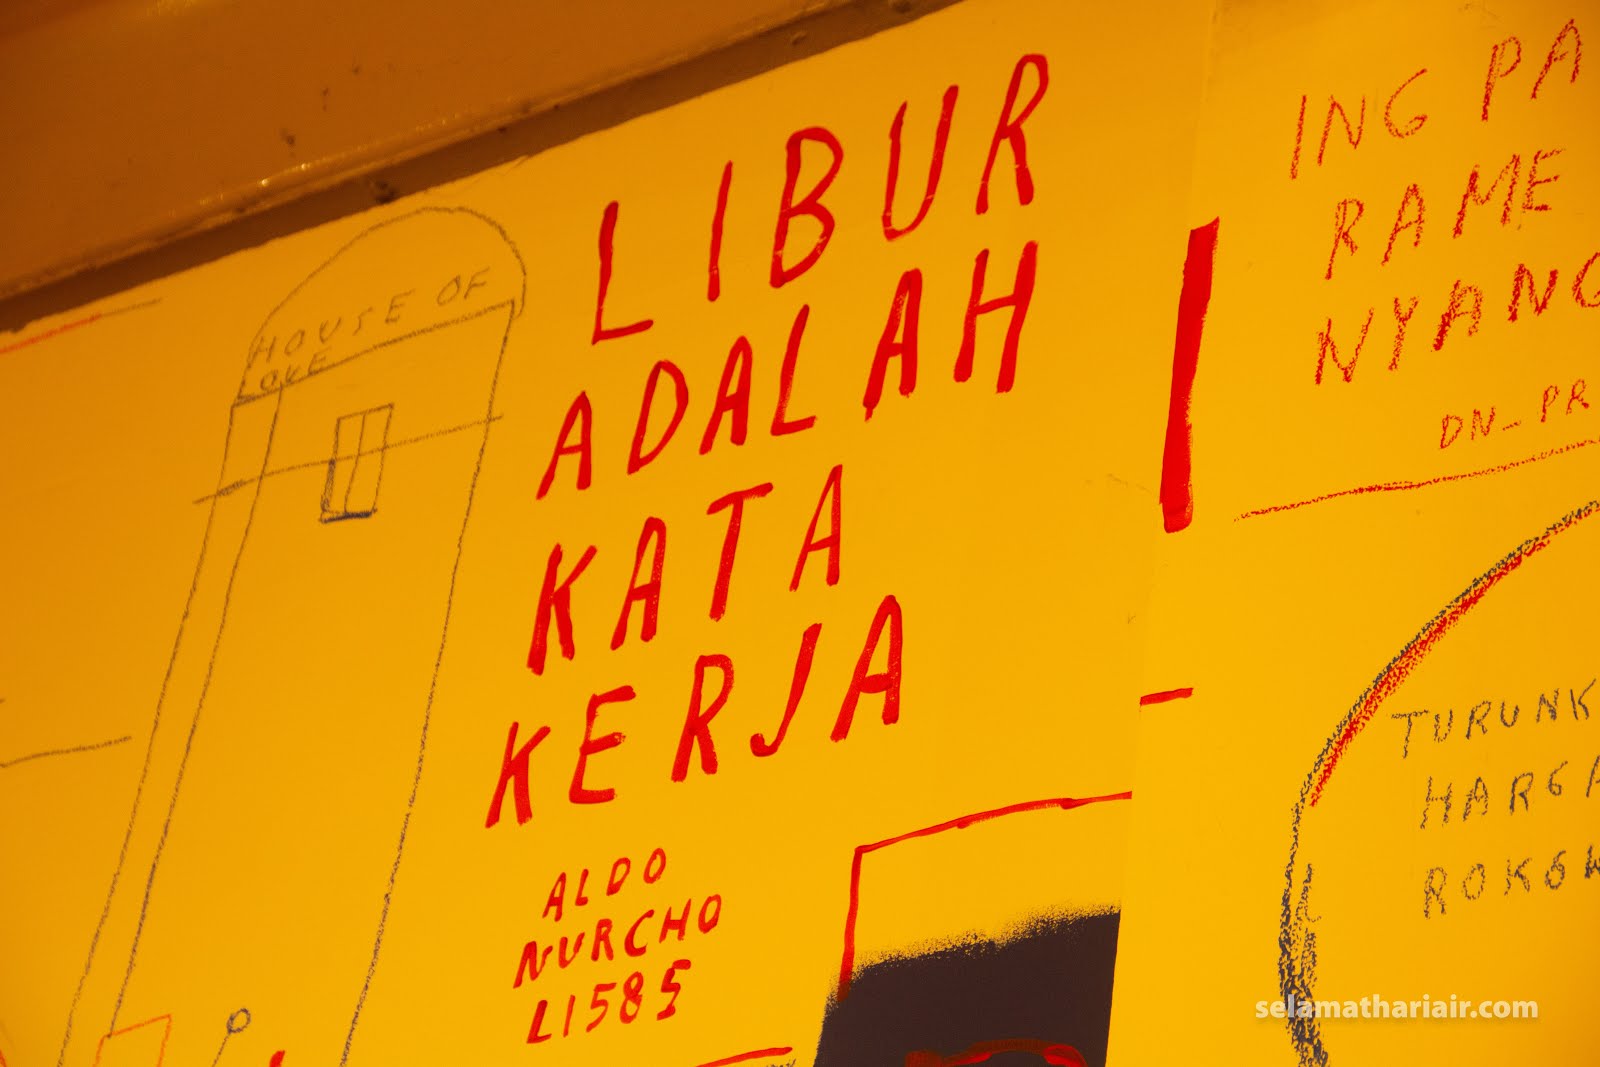 HOUSE OF
LOVE
LIBUR
ADALAH
KATA
KERJA
ALDO
NURCHO
LI585
ING PA
RAME
NYANG
DN_PR
TURUNK
HARGA
ROKOK
selamathariair.com